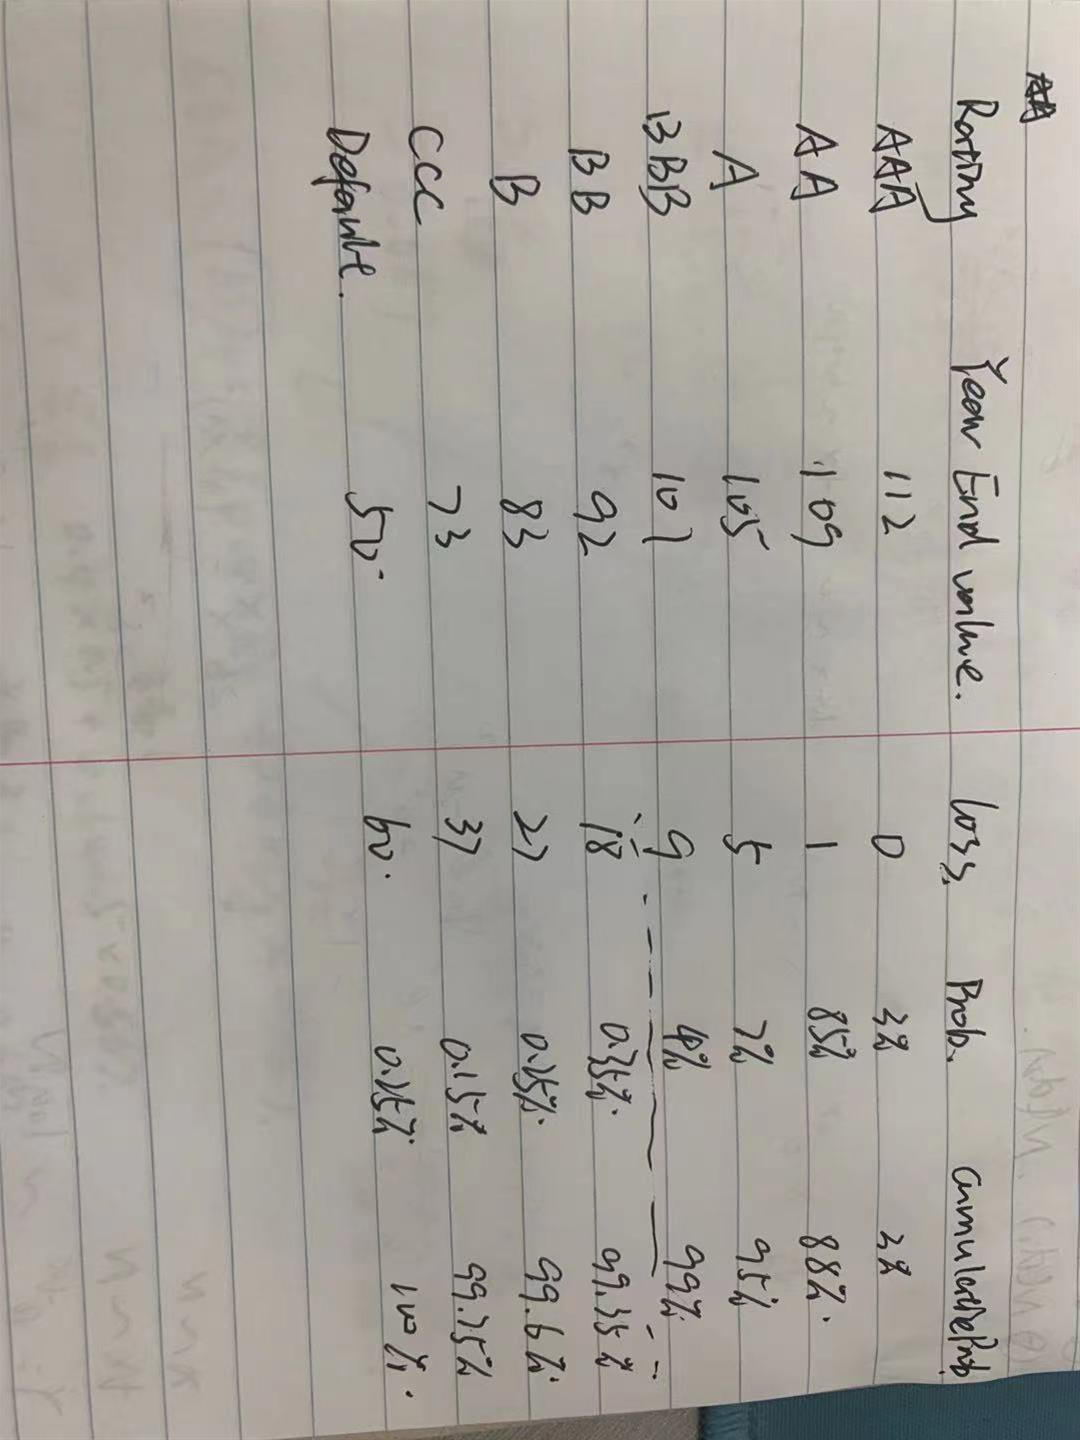 Rating Year End value. loss. Prob. cumulative Prob
AAA 112 0 3% 3%
AA 109 1 85% 88%.
A 105 5 7% 95%
BBB 101 9 4% 99%
BB 92 18 0.35%. 99.35%
B 83 27 0.25%. 99.6%.
CCC 73 37 0.15% 99.75%
Default. 50. 60. 0.25% 100%.